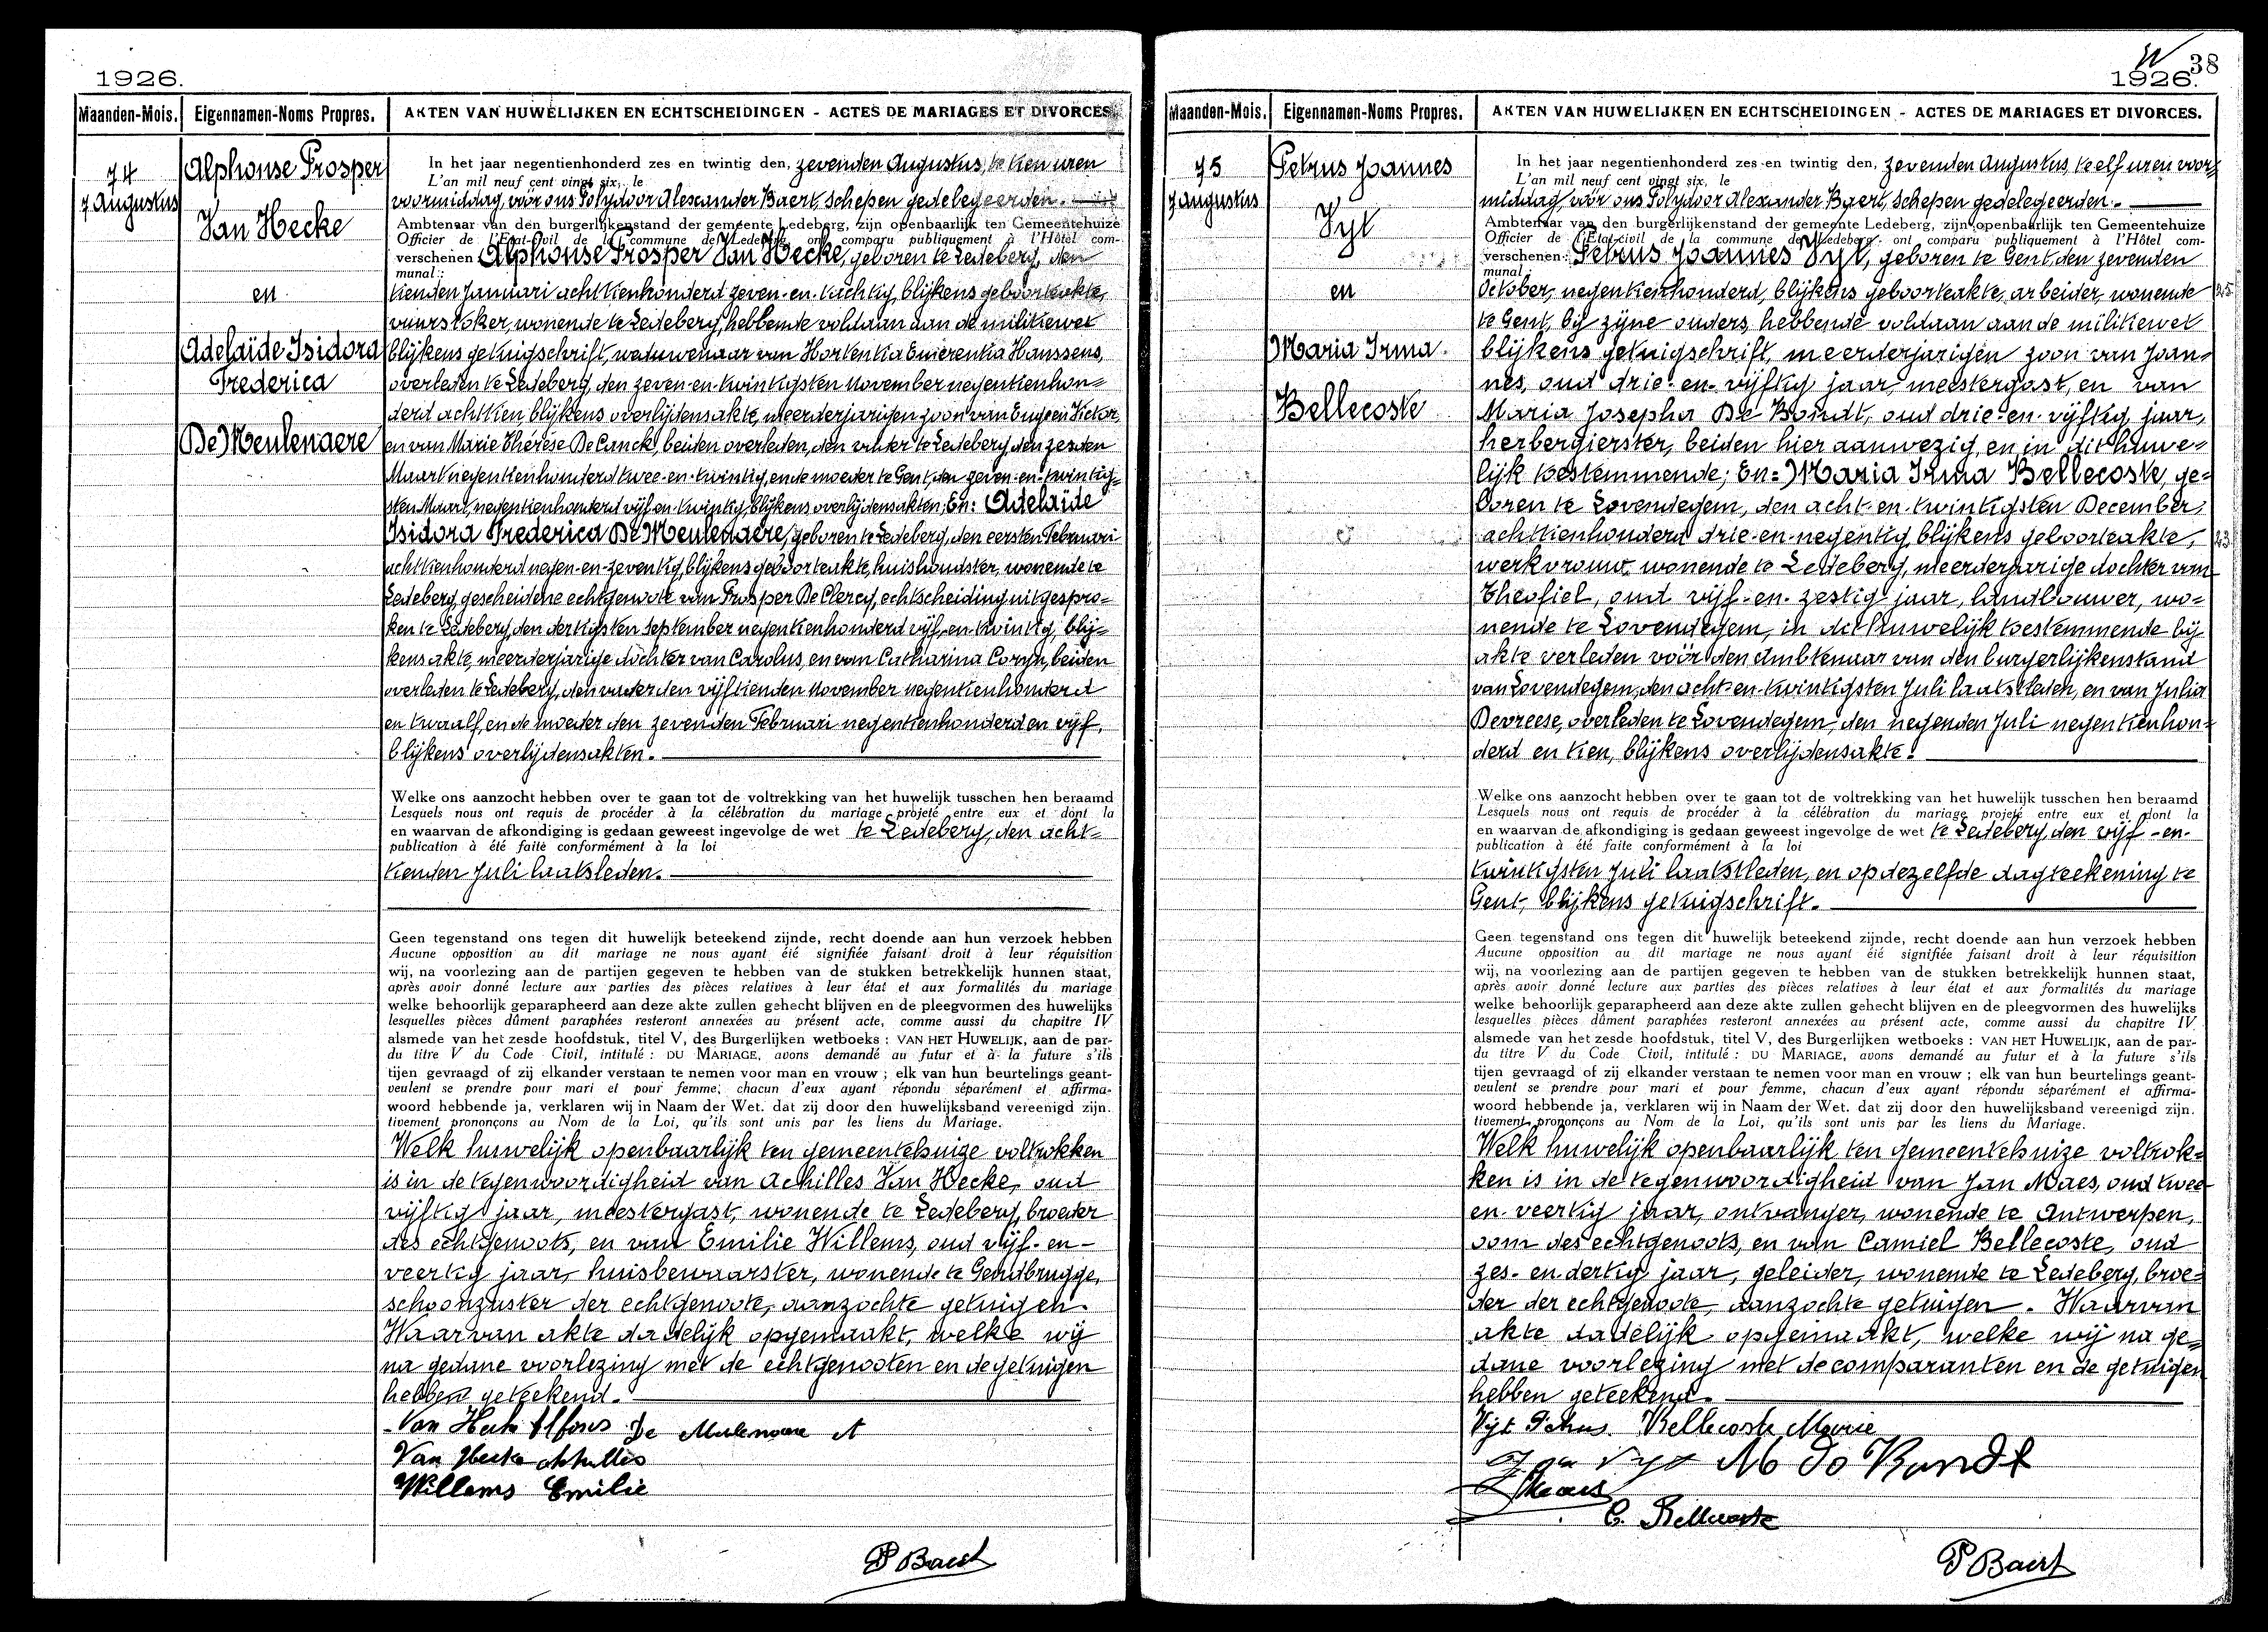 1926.
Maanden-Mois. Eigennamen-Noms Propres. AKTEN VAN HUWELIJKEN EN ECHTSCHEIDINGEN - ACTES DE MARIAGES ET DIVORCES.
74
7 Augustus
Alphonse Prosper
Van Hecke
en
Adelaïde Isidora
Frederica
De Meulenaere
In het jaar negentienhonderd zes en twintig den, zevenden Augustus, te tien uren
L'an mil neuf cent vingt six, le
voormiddag, vóór ons Polydoor Alexander Baert, schepen gedelegeerden.
Ambtenaar van den burgerlijkenstand der gemeente Ledeberg, zijn openbaarlijk ten Gemeentehuize
Officier de l'Etat-Civil de la commune de Ledeberg, ont comparu publiquement à l'Hôtel com-
verschenen: Alphonse Prosper Van Hecke, geboren te Ledeberg, den
munal:
tienden Januari achttienhonderd zeven-en-tachtig, blijkens geboorteakte,
vuurstoker, wonende te Ledeberg, hebbende voldaan aan de militiewet
blijkens getuigschrift, weduwenaar van Hortentia Emerentia Hanssens,
overleden te Ledeberg, den zeven-en-twintigsten November negentienhon=
derd achttien, blijkens overlijdensakte, meerderjarigen zoon van Eugeen Victor,
en van Marie Thérèse De Canck, beiden overleden, den vader te Ledeberg den zesden
Maart negentienhonderd twee-en-twintig, en de moeder te Gent, den zeven-en-twintig=
sten Maart, negentienhonderd vijf-en-twintig, blijkens overlijdensakten; En: Adelaïde
Isidora Frederica De Meulenaere, geboren te Ledeberg, den eersten Februari
achttienhonderd negen-en-zeventig, blijkens geboorteakte, huishoudster, wonende te
Ledeberg, gescheidene echtgenoote van Prosper De Clercq, echtscheiding uitgespro=
ken te Ledeberg, den dertigsten September negentienhonderd vijf-en-twintig, blij=
kens akte, meerderjarige dochter van Carolus, en van Catharina Coryn, beiden
overleden te Ledeberg, den vader den vijftienden November negentienhonderd
en twaalf, en de moeder den zevenden Februari negentienhonderd en vijf,
blijkens overlijdensakten.
Welke ons aanzocht hebben over te gaan tot de voltrekking van het huwelijk tusschen hen beraamd
Lesquels nous ont requis de procéder à la célébration du mariage projeté entre eux et dont la
en waarvan de afkondiging is gedaan geweest ingevolge de wet te Ledeberg, den acht=
publication à été faite conformément à la loi
tienden Juli laatsleden.
Geen tegenstand ons tegen dit huwelijk beteekend zijnde, recht doende aan hun verzoek hebben
Aucune opposition au dit mariage ne nous ayant été signifiée faisant droit à leur réquisition
wij, na voorlezing aan de partijen gegeven te hebben van de stukken betrekkelijk hunnen staat,
après avoir donné lecture aux parties des pièces relatives à leur état et aux formalités du mariage
welke behoorlijk geparapheerd aan deze akte zullen gehecht blijven en de pleegvormen des huwelijks
lesquelles pièces dûment paraphées resteront annexées au présent acte, comme aussi du chapitre IV
alsmede van het zesde hoofdstuk, titel V, des Burgerlijken wetboeks : VAN HET HUWELIJK, aan de par-
du titre V du Code Civil, intitulé : DU MARIAGE, avons demandé au futur et à la future s'ils
tijen gevraagd of zij elkander verstaan te nemen voor man en vrouw ; elk van hun beurtelings geant-
veulent se prendre pour mari et pour femme; chacun d'eux ayant répondu séparément et affirma-
woord hebbende ja, verklaren wij in Naam der Wet. dat zij door den huwelijksband vereenigd zijn.
tivement prononçons au Nom de la Loi, qu'ils sont unis par les liens du Mariage.
Welk huwelijk openbaarlijk ten gemeentehuize voltrokken
is in de tegenwoordigheid van Achilles Van Hecke, oud
vijftig jaar, meestergast, wonende te Ledeberg, broeder
des echtgenoots, en van Emilie Willems, oud vijf-en-
veertig jaar, huisbewaarster, wonende te Gendbrugge,
schoonzuster der echtgenoote, aanzochte getuigen.
Waarvan akte dadelijk opgemaakt, welke wij
na gedane voorlezing met de echtgenooten en de getuigen
hebben geteekend.
Van Hecke Alfons De Meulenaere A
Van Hecke Achilles
Willems Emilie
P Baert
38
1926.
Maanden-Mois. Eigennamen-Noms Propres. AKTEN VAN HUWELIJKEN EN ECHTSCHEIDINGEN - ACTES DE MARIAGES ET DIVORCES.
75
7 augustus
Petrus Joannes
Vyt
en
Maria Irma
Bellecoste
In het jaar negentienhonderd zes en twintig den, zevenden Augustus, te elf uren voor=
L'an mil neuf cent vingt six, le
middag, vóór ons Polydoor Alexander Baert, schepen gedelegeerden.
Ambtenaar van den burgerlijkenstand der gemeente Ledeberg, zijn openbaarlijk ten Gemeentehuize
Officier de l'Etat-civil de la commune de Ledeberg, ont comparu publiquement à l'Hôtel com-
verschenen: Petrus Joannes Vyt, geboren te Gent den zevenden
munal:
October, negentienhonderd, blijkens geboorteakte, arbeider, wonende 25
te Gent, bij zijne ouders, hebbende voldaan aan de militiewet
blijkens getuigschrift, meerderjarigen zoon van Joan=
nes, oud drie-en-vijftig jaar, meestergast, en van
Maria Josepha De Bondt, oud drie-en-vijftig jaar,
herbergierster, beiden hier aanwezig, en in dit huwe=
lijk toestemmende; En: Maria Irma Bellecoste, ge=
boren te Lovendegem, den acht-en-twintigsten December,
achttienhonderd drie-en-negentig, blijkens geboorteakte,
werkvrouw, wonende te Ledeberg, meerderjarige dochter van
Theofiel, oud vijf-en-zestig jaar, landbouwer, wo=
nende te Lovendegem, in dit huwelijk toestemmende bij
akte verleden vóór den Ambtenaar van den burgerlijkenstand
van Lovendegem, den acht-en-twintigsten Juli laatstleden, en van Julia
Devreese, overleden te Lovendegem, den negenden Juli negentienhon=
derd en tien, blijkens overlijdensakte.
Welke ons aanzocht hebben over te gaan tot de voltrekking van het huwelijk tusschen hen beraamd
Lesquels nous ont requis de procéder à la célébration du mariage projeté entre eux et dont la
en waarvan de afkondiging is gedaan geweest ingevolge de wet te Ledeberg, den vijf-en-
publication à été faite conformément à la loi
twintigsten Juli laatstleden, en op dezelfde dagteekening te
Gent, blijkens getuigschrift.
Geen tegenstand ons tegen dit huwelijk beteekend zijnde, recht doende aan hun verzoek hebben
Aucune opposition au dit mariage ne nous ayant été signifiée faisant droit à leur réquisition
wij, na voorlezing aan de partijen gegeven te hebben van de stukken betrekkelijk hunnen staat,
après avoir donné lecture aux parties des pièces relatives à leur état et aux formalités du mariage
welke behoorlijk geparapheerd aan deze akte zullen gehecht blijven en de pleegvormen des huwelijks
lesquelles pièces dûment paraphées resteront annexées au présent acte, comme aussi du chapitre IV
alsmede van het zesde hoofdstuk, titel V, des Burgerlijken wetboeks : VAN HET HUWELIJK, aan de par-
du titre V du Code Civil, intitulé : DU MARIAGE, avons demandé au futur et à la future s'ils
tijen gevraagd of zij elkander verstaan te nemen voor man en vrouw ; elk van hun beurtelings geant-
veulent se prendre pour mari et pour femme, chacun d'eux ayant répondu séparément et affirma-
woord hebbende ja, verklaren wij in Naam der Wet. dat zij door den huwelijksband vereenigd zijn.
tivement prononçons au Nom de la Loi, qu'ils sont unis par les liens du Mariage.
Welk huwelijk openbaarlijk ten gemeentehuize voltrok=
ken is in de tegenwoordigheid van Jan Maes, oud twee
en-veertig jaar, ontvanger, wonende te Antwerpen,
oom des echtgenoots, en van Camiel Bellecoste, oud
zes-en dertig jaar, geleider, wonende te Ledeberg, broe=
der der echtgenoote, aanzochte getuigen. Waarvan
akte dadelijk opgemaakt, welke wij na ge=
dane voorlezing met de comparanten en de getuigen
hebben geteekend.
Vyt Petrus Bellecoste Marie
Jan Vyt M De Bondt
J Maes
C. Bellecoste
P Baert